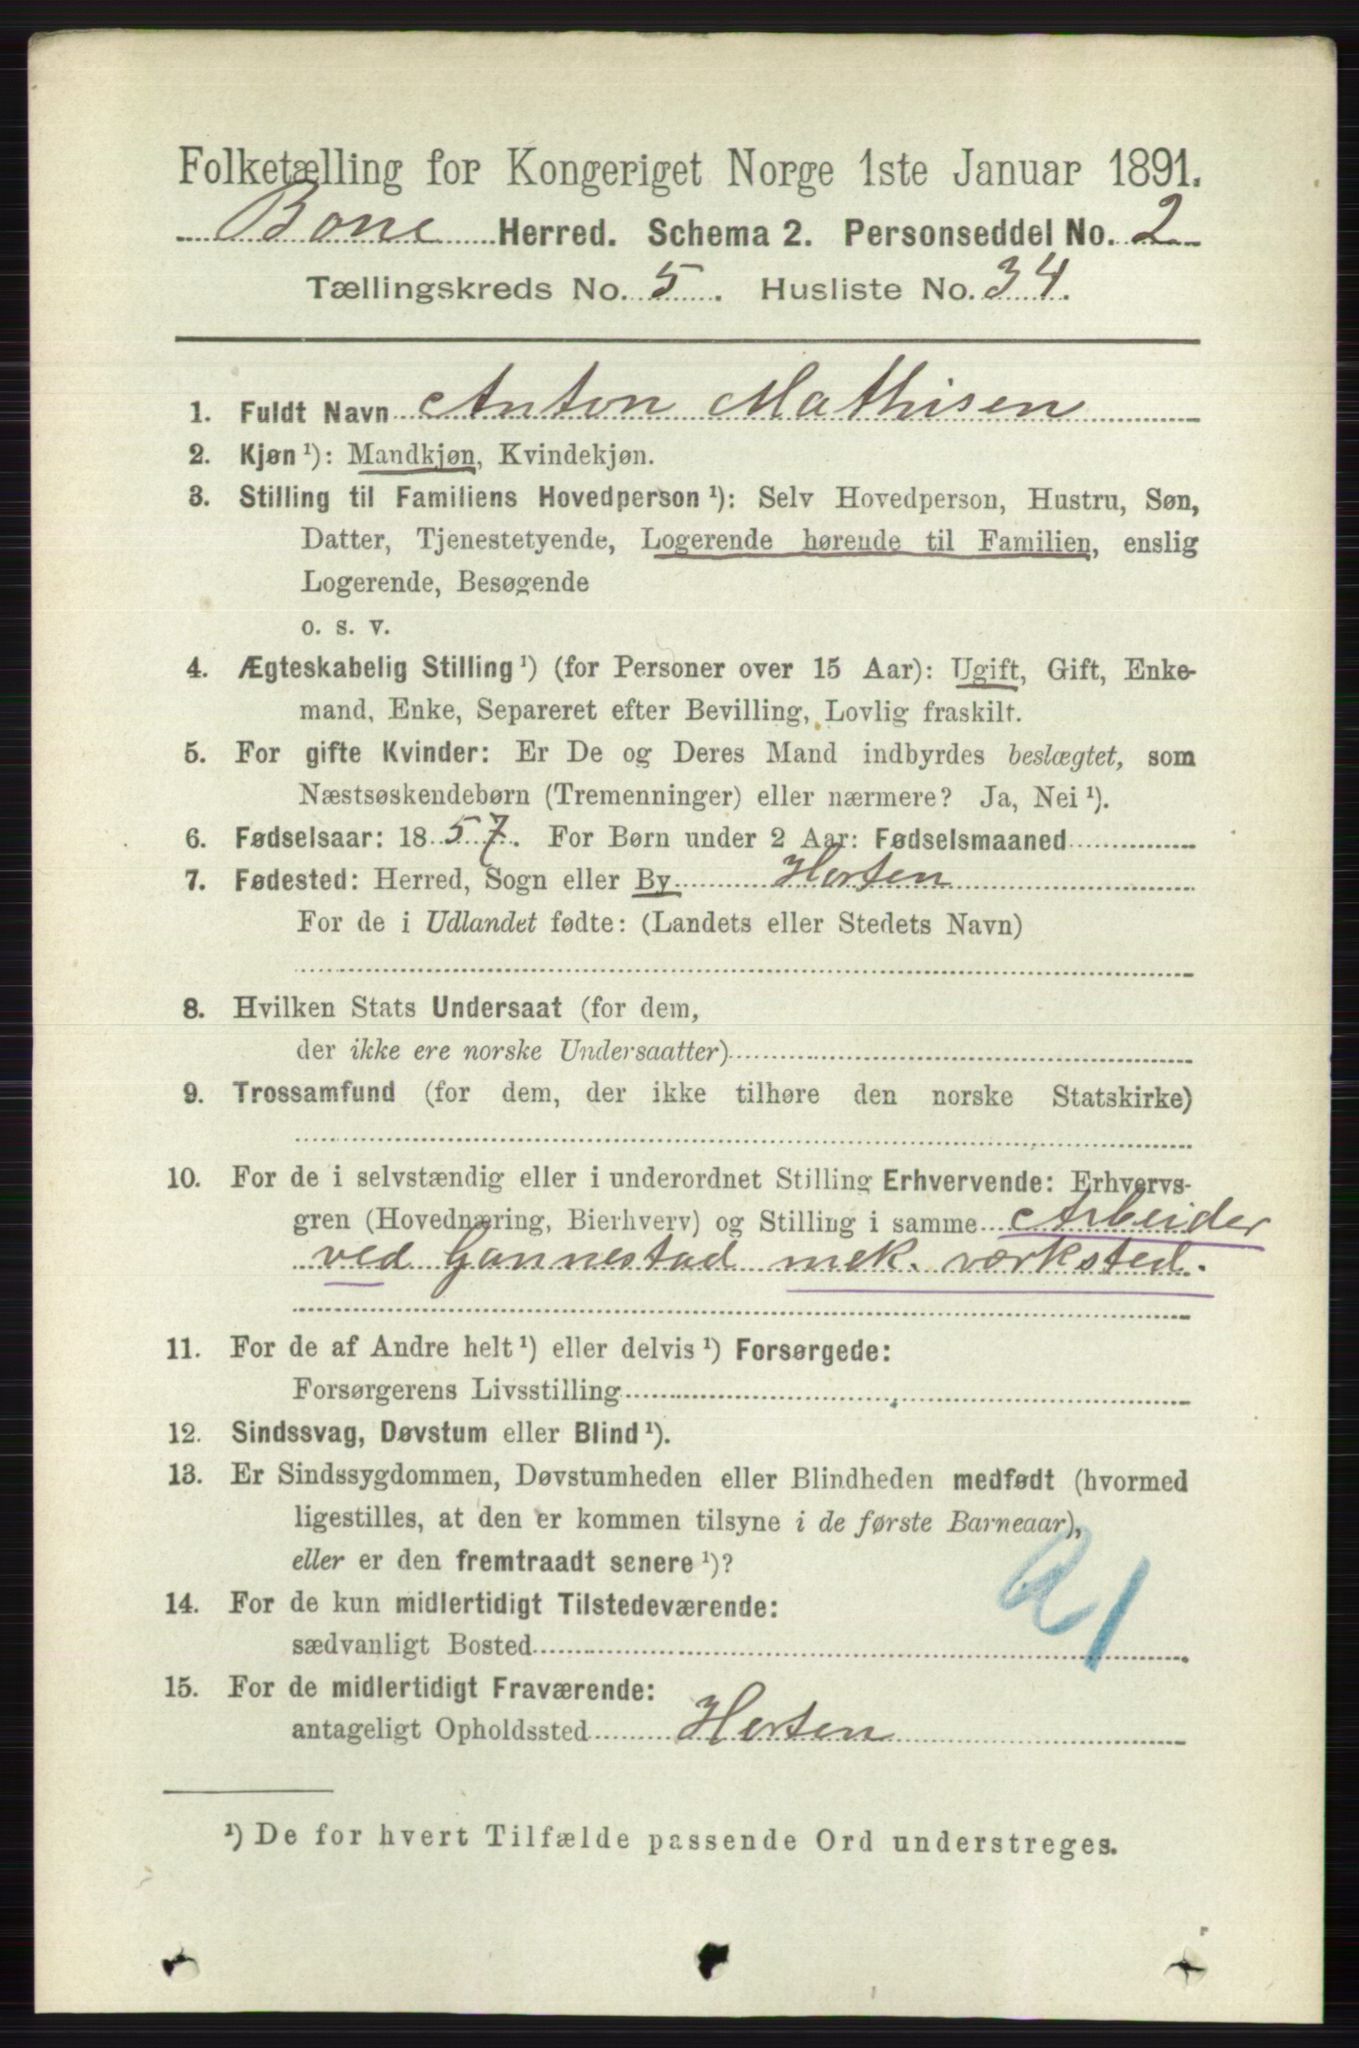 Folketælling for Kongeriget Norge 1ste Januar 1891.
Borre Herred. Schema 2. Personseddel No. 2
Tællingskreds No. 5. Husliste No. 34.
1. Fuldt Navn Anton Mathisen
2. Kjøn ¹): Mandkjøn, Kvindekjøn.
3. Stilling til Familiens Hovedperson ¹): Selv Hovedperson, Hustru, Søn,
Datter, Tjenestetyende, Logerende hørende til Familien, enslig
Logerende, Besøgende
o. s. v.
4. Ægteskabelig Stilling ¹) (for Personer over 15 Aar): Ugift, Gift, Enke-
mand, Enke, Separeret efter Bevilling, Lovlig fraskilt.
5. For gifte Kvinder: Er De og Deres Mand indbyrdes beslægtet, som
Næstsøskendebørn (Tremenninger) eller nærmere? Ja, Nei ¹).
6. Fødselsaar: 1857. For Børn under 2 Aar: Fødselsmaaned
7. Fødested: Herred, Sogn eller By Horten
For de i Udlandet fødte: (Landets eller Stedets Navn)
8. Hvilken Stats Undersaat (for dem,
der ikke ere norske Undersaatter)
9. Trossamfund (for dem, der ikke tilhøre den norske Statskirke)
10. For de i selvstændig eller i underordnet Stilling Erhvervende: Erhvervs-
gren (Hovednæring, Bierhverv) og Stilling i samme Arbeider
ved Gannestad mek. værksted.
11. For de af Andre helt ¹) eller delvis ¹) Forsørgede:
Forsørgerens Livsstilling
12. Sindssvag, Døvstum eller Blind ¹).
13. Er Sindssygdommen, Døvstumheden eller Blindheden medfødt (hvormed
ligestilles, at den er kommen tilsyne i de første Barneaar),
eller er den fremtraadt senere ¹)?
21
14. For de kun midlertidigt Tilstedeværende:
sædvanligt Bosted
15. For de midlertidigt Fraværende:
antageligt Opholdssted Horten
¹) De for hvert Tilfælde passende Ord understreges.